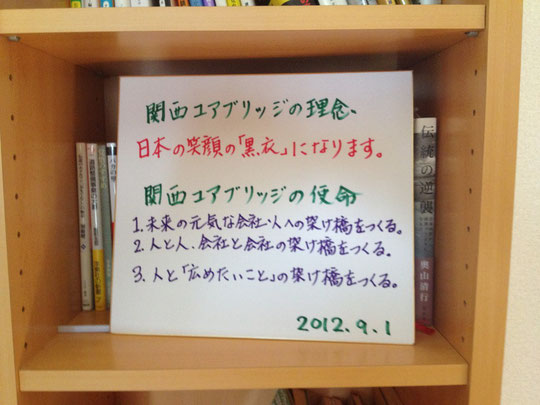 関西ユアブリッジの理念、
日本の笑顔の「黒衣」になります。
関西ユアブリッジの使命
1.未来の元気な会社・人への架け橋をつくる。
2.人と人、会社と会社の架け橋をつくる。
3.人と「広めたいこと」の架け橋をつくる。
2012.9.1
伝統の逆襲
奥山清行